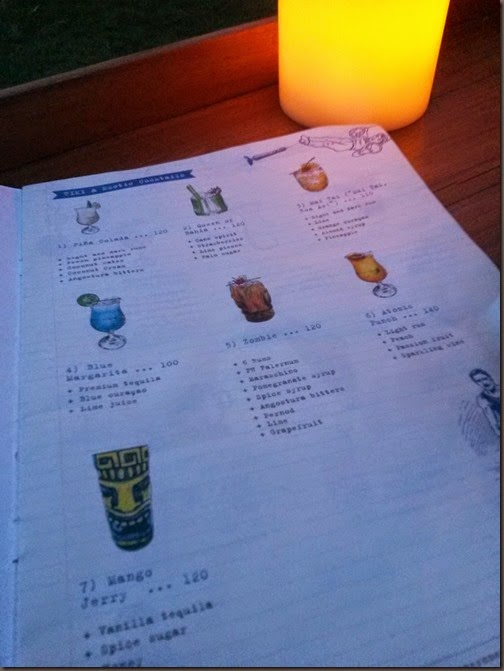 Tiki & Exotic Cocktails
1) Piña Colada ... 120
+ Light and dark rums
+ Fresh pineapple
+ Coconut water
+ Coconut cream
+ Angostura bitters
2) Queen of
Bahia ... 120
+ Cane spirit
+ Strawberries
+ Lime pieces
+ Palm sugar
3) Mai Tai ("Mai Tai,
Roa Ae") ... 120
+ Light and dark rum
+ Lime
+ Orange curaçao
+ Almond syrup
+ Pineapple
4) Blue
Margarita ... 100
+ Premium tequila
+ Blue curaçao
+ Lime juice
5) Zombie ... 120
+ 6 Rums
+ FW Falernum
+ Maraschino
+ Pomegranate syrup
+ Spice syrup
+ Angostura bitters
+ Pernod
+ Lime
+ Grapefruit
6) Atomic
Punch ... 140
+ Light rum
+ Peach
+ Passion fruit
+ Sparkling wine
7) Mango
Jerry ... 120
+ Vanilla tequila
+ Spice sugar
+ Honey